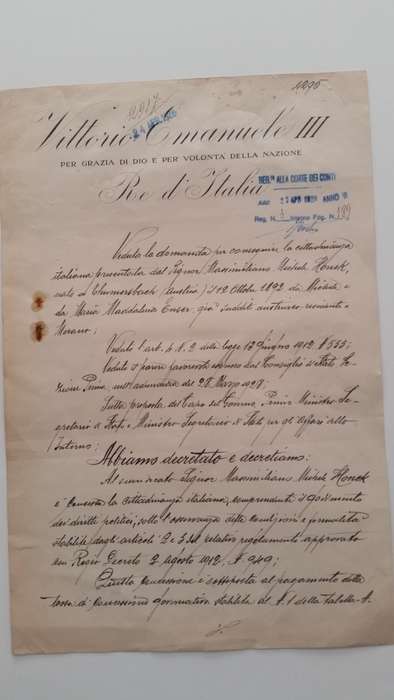 4295
2217
24 APR. 1928
Vittorio Emanuele III
PER GRAZIA DI DIO E PER VOLONTÀ DELLA NAZIONE
Re d'Italia
REG.TA ALLA CORTE DEI CONTI
ADDÌ 27 APR 1928 ANNO VI
Reg. N. Interno Fog. N. 199
Veduta la domanda per conseguire la cittadinanza
italiana presentata dal Signor Massimiliano Michele Houck,
nato a (Austria) il 12 Ottobre 1893 da Michele e
da Maria Maddalena Enser già sudditi austriaci, residente a
Merano;
Veduto l'art. 4 N. 2 della legge 13 Giugno 1912 N. 555;
Veduto il parere favorevole emesso dal Consiglio di Stato Se-
zione Prima nell'adunanza del 28 Marzo 1928;
Sulla proposta del Capo del Governo, Primo Ministro Se-
gretario di Stato e Ministro Segretario di Stato per gli affari dell'
Interno;
Abbiamo decretato e decretiamo:
Al nominato Signor Massimiliano Michele Houck
è concessa la cittadinanza italiana, comprendente il godimento
dei diritti politici, sotto l'osservanza delle condizioni e formalità
stabilite dagli articoli 2 e 5 del relativo regolamento approvato
con Regio Decreto 2 agosto 1912 N. 949;
Questa concessione è sottoposta al pagamento della
tassa di concessione governativa stabilita al N. 1 della Tabella A.